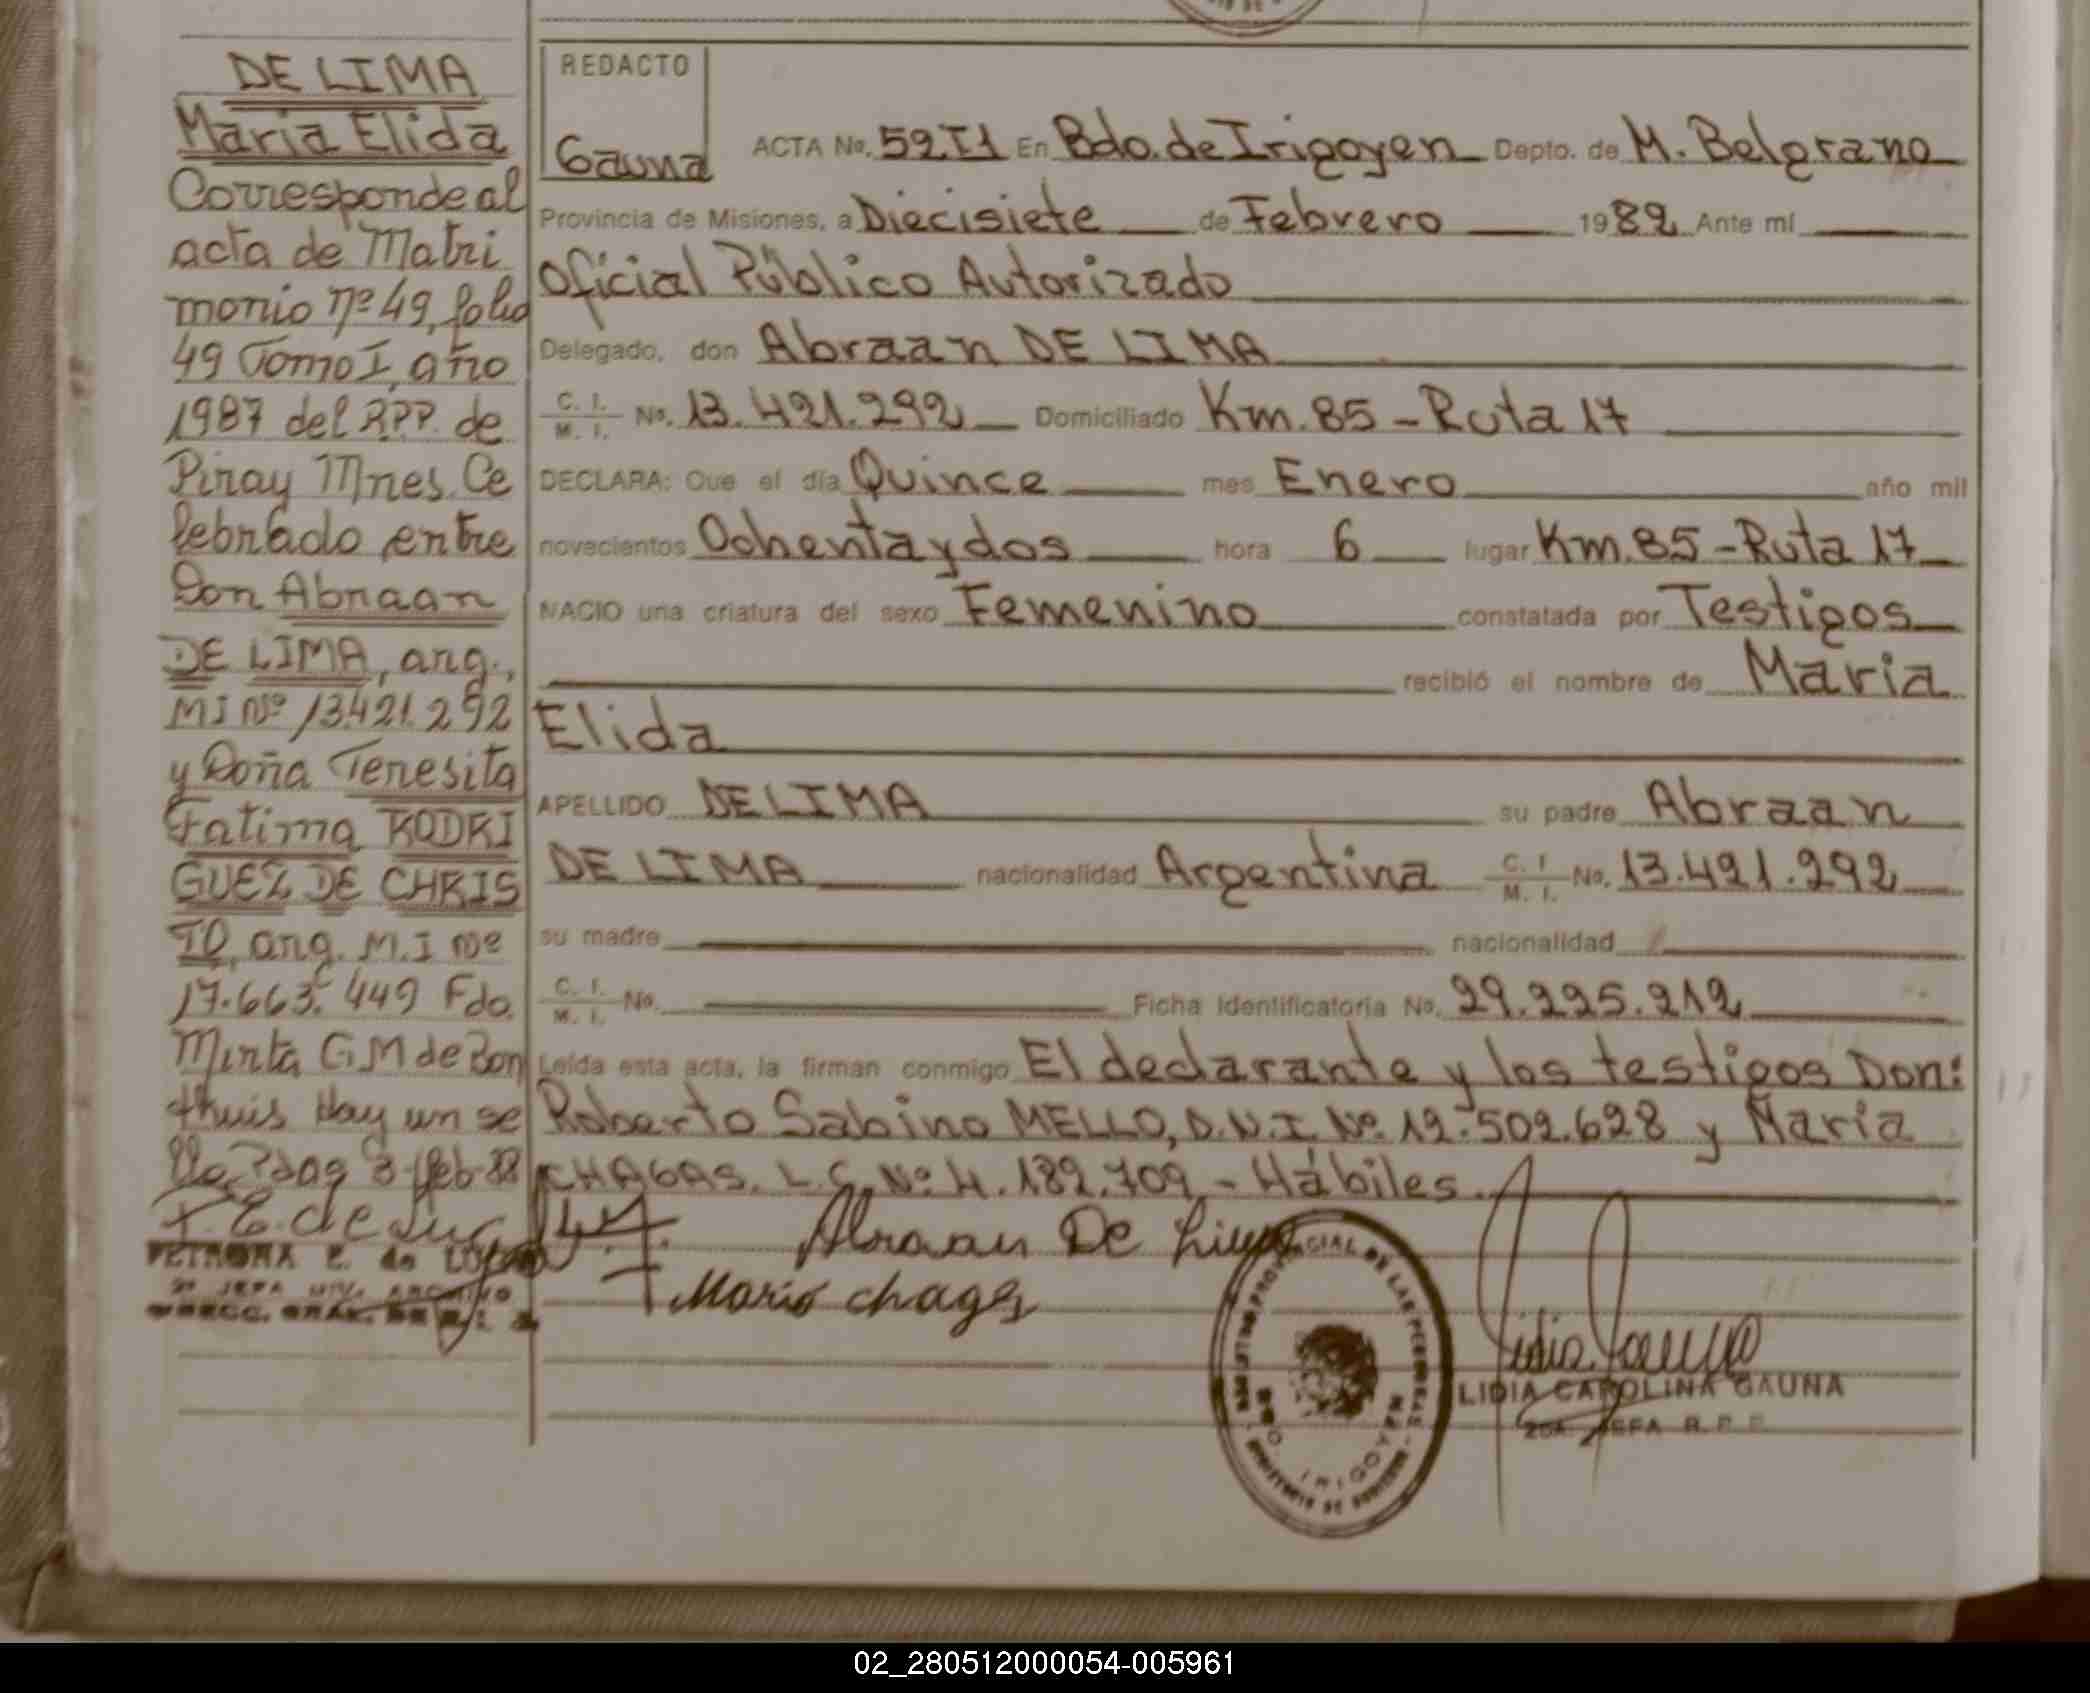 DE LIMA
Maria Elida
Corresponde al
acta de Matri
monio nº 49, folio
49 Tomo I, año
1987 del R.P.P. de
Piray Mnes. Ce
lebrado entre
Don Abraan
DE LIMA, arg.,
MI Nº 13.421.292
y Doña Teresita
Fatima RODRI
GUEZ DE CHRIS
TO, arg. M.I Nº
17.663.449 Fdo.
Mirta G.M de Bon
thuis Hay un se
llo Pdas 3-feb-88
PETRONA E. de
2º JEFA DIV. ARCHIVO
DIRECC. GRAL. DE
REDACTO
Gauna
ACTA No. 52TI En Bdo. de Irigoyen Depto. de M. Belgrano
Provincia de Misiones, a Diecisiete de Febrero 1982 Ante mí
Oficial Público Autorizado
Delegado, don Abraan DE LIMA
C. I. M. I. No. 13.421.292 Domiciliado Km. 85 - Ruta 17
DECLARA: Que el día Quince mes Enero año mil
novecientos Ochenta y dos hora 6 lugar Km. 85 - Ruta 17
NACIO una criatura del sexo Femenino constatada por Testigos
recibió el nombre de Maria
Elida
APELLIDO DE LIMA su padre Abraan
DE LIMA nacionalidad Argentina C. I. M. I. No. 13.421.292
su madre nacionalidad
C. I. M. I. No. Ficha Identificatoria No. 29.225.212
Leída esta acta, la firman conmigo El declarante y los testigos Don:
Roberto Sabino MELLO, D.N.I. Nº. 12.502.628 y Maria
CHAGAS. L.C. Nº 4.182.709 - Hábiles.
Abraan De Lima
Maria chagas
Lidia Gauna
LIDIA CAROLINA GAUNA
2DA. JEFA R.P.P.
IRIGOYEN
02_280512000054-005961